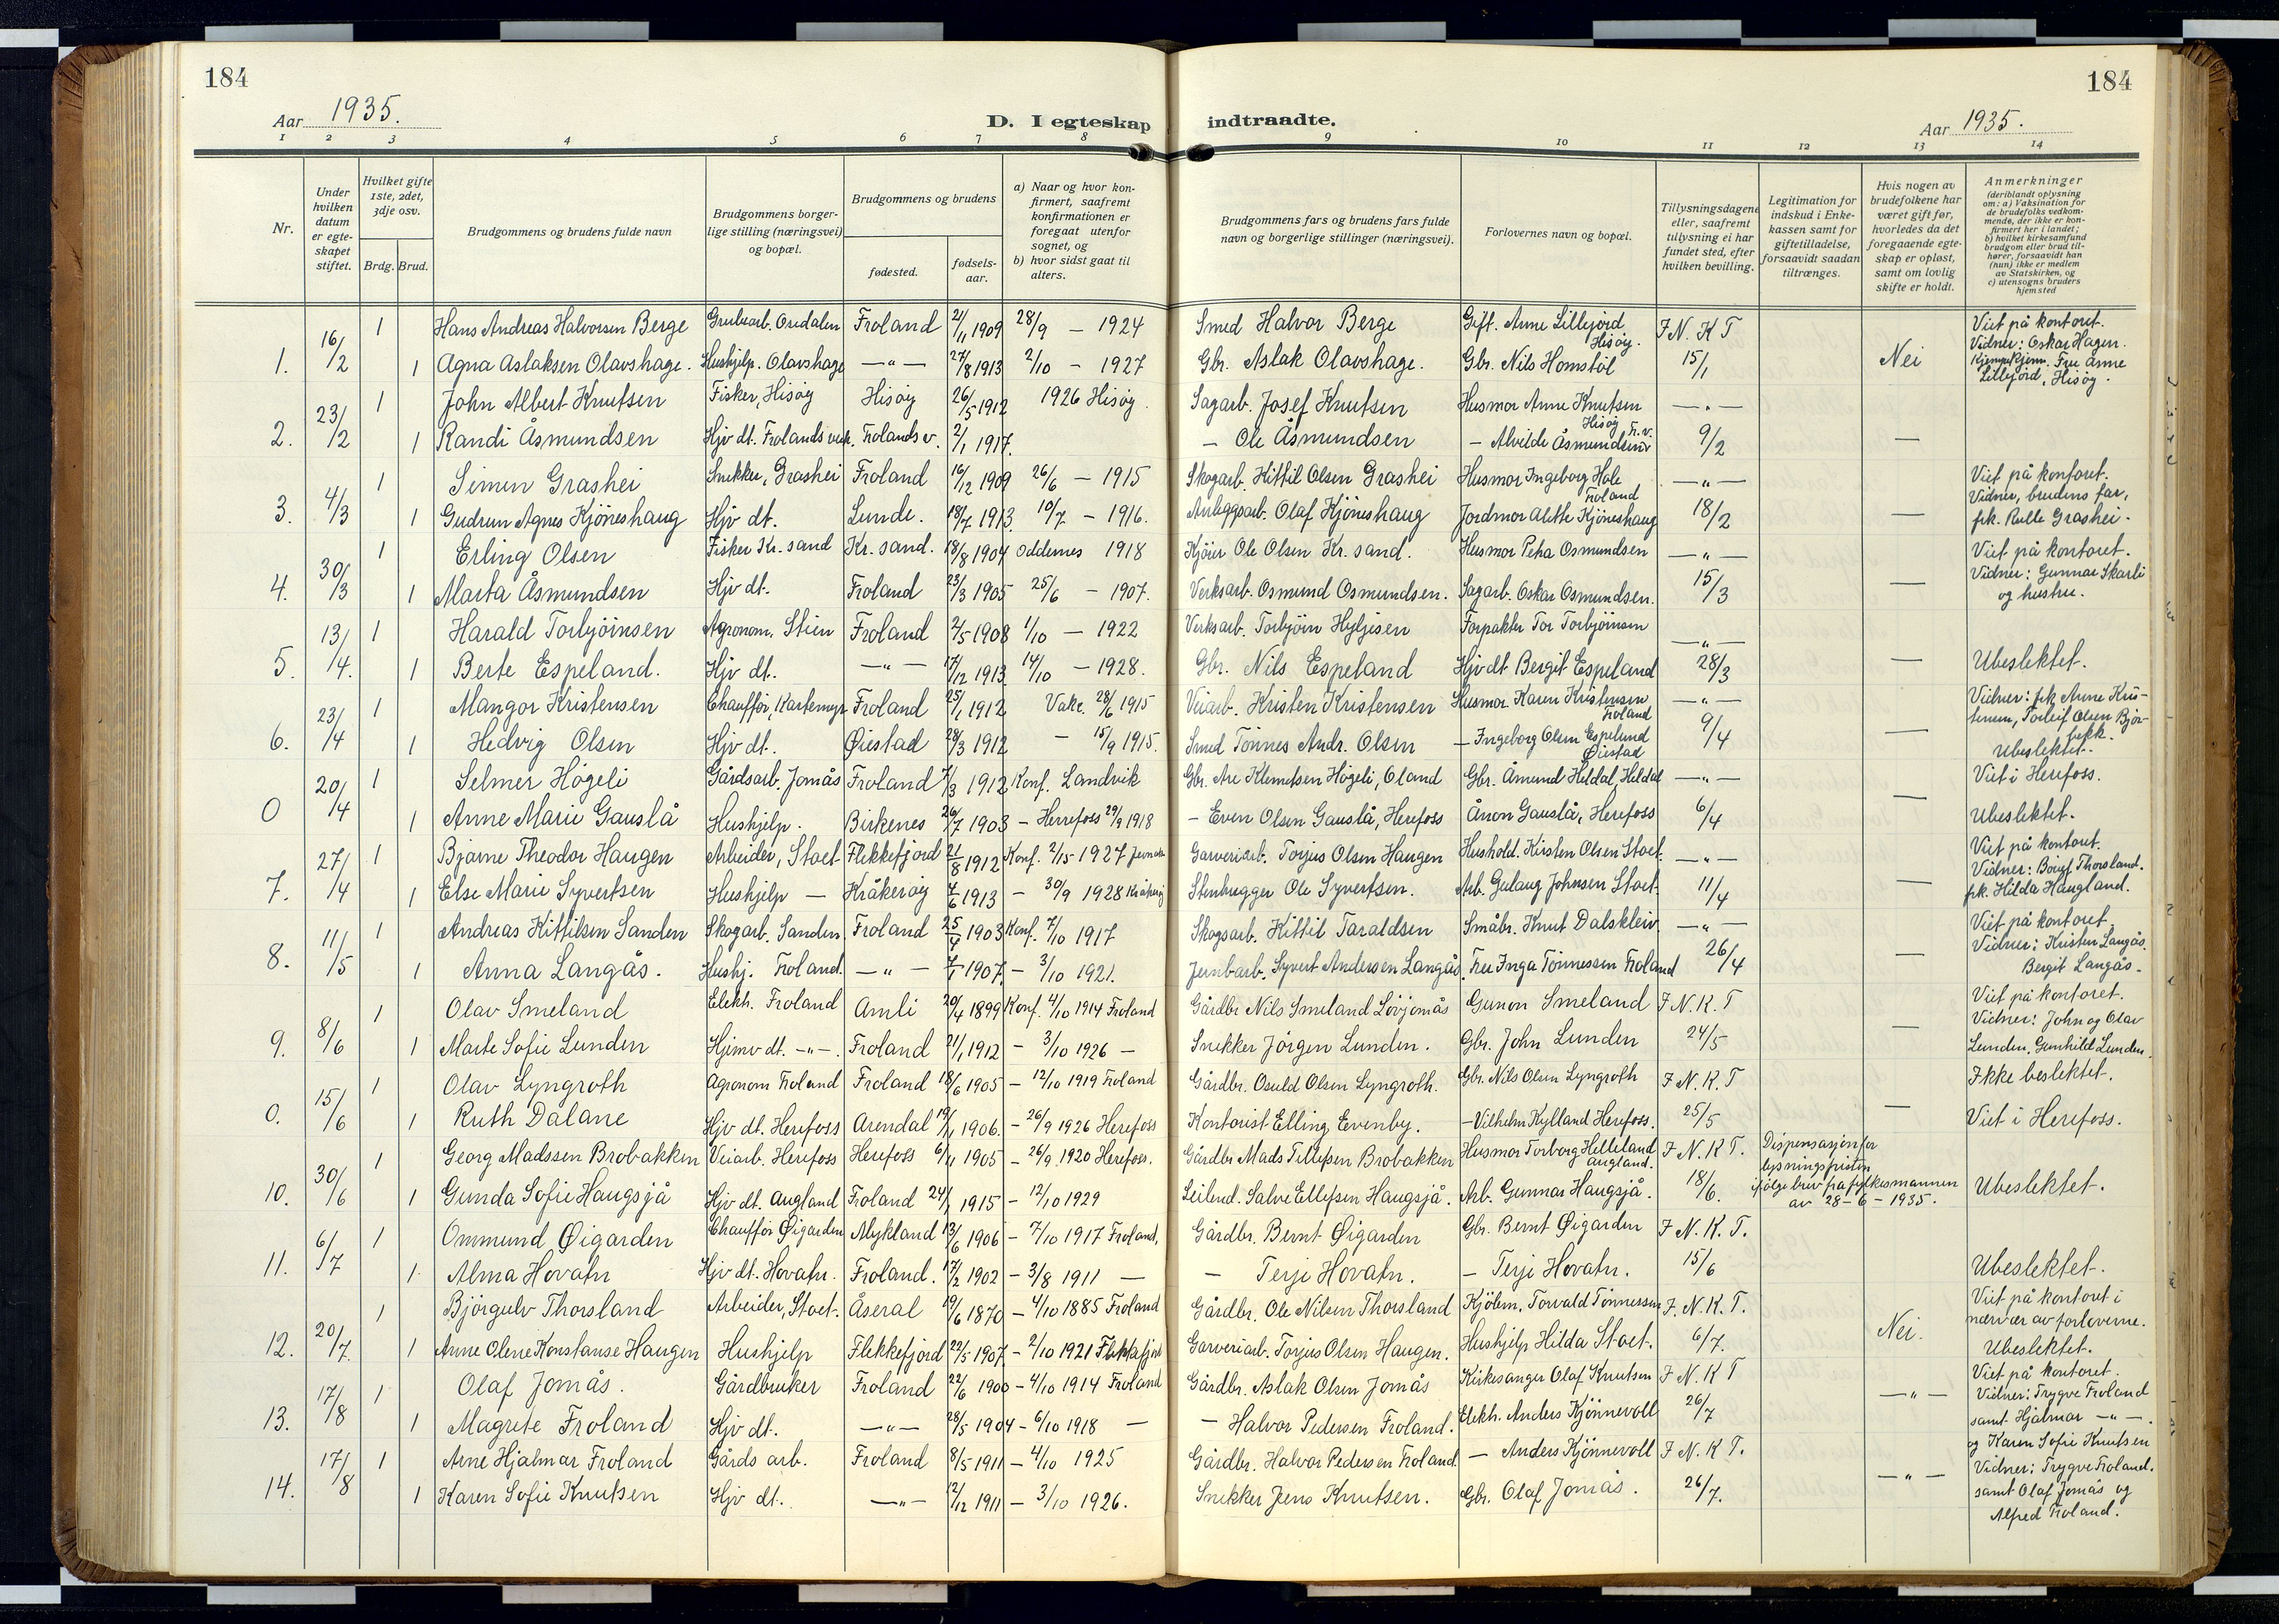 184
184
Aar 1935.
D. I egteskap indtraadte.
Aar 1935.
1 2 3 4 5 6 7 8 9 10 11 12 13 14
Nr.
Under hvilken datum er egteskapet stiftet.
Hvilket gifte 1ste, 2det, 3dje osv.
Brdg. Brud.
Brudgommens og brudens fulde navn
Brudgommens borgerlige stilling (næringsvei) og bopæl.
Brudgommens og brudens
fødested.
fødselsaar.
a) Naar og hvor konfirmert, saafremt konfirmationen er foregaat utenfor sognet, og
b) hvor sidst gaat til alters.
Brudgommens fars og brudens fars fulde navn og borgerlige stillinger (næringsvei).
Forlovernes navn og bopæl.
Tillysningsdagene eller, saafremt tillysning ei har fundet sted, efter hvilken bevilling.
Legitimation for indskud i Enkekassen samt for giftetilladelse, forsaavidt saadan tiltrænges.
Hvis nogen av brudefolkene har været gift før, hvorledes da det foregaaende egteskap er opløst, samt om lovlig skifte er holdt.
Anmerkninger (deriblandt oplysning om: a) Vaksination for de brudefolks vedkommende, der ikke er konfirmert her i landet; b) hvilket kirkesamfund brudgom eller brud tilhører, forsaavidt han (hun) ikke er medlem av Statskirken, og c) utensogns bruders hjemsted
1 Hans Andreas Halvorsen Berge Grubearb. Oredalen Froland 21/11 1909 28/9 — 1924 Smed Halvor Berge Gift. Anne Lillejord Hisøy. F N. K T Viet på kontoret. Vidner: Oskar Hagen.
1. 16/2 1 Agna Aslaksen Olavshage. Hushjelp. Olavshage —"— 27/8 1913 2/10 - 1927 Gbr. Aslak Olavshage. Gbr. Nils Homstøl 15/1 Nei Fru Anne Lillejord, Hisøy.
1 John Albert Knutsen Fisker, Hisøy Hisøy 26/5 1912 1926 Hisøy. Sagarb. Josef Knutsen Husmor Anne Knutsen Hisøy —"—
2. 23/2 1 Randi Åsmundsen Hjv dt. Frolands verk. Frolands v. 2/1 1917. — Ole Åsmundsen — Alvilde Åsmundsen Fr.v. 9/2 —
1 Simen Grashei Snekker, Grashei Froland 16/12 1909 26/6 — 1915 Skogarb. Kittil Olsen Grashei Husmor Ingeborg Hole Froland —"— Viet på kontoret.
3. 4/3 1 Gudrun Agnes Kjöneshaug Hjv dt. Lunde. 18/7 1913. 10/7 - 1916. Anleggsarb. Olaf Kjöneshaug Jordmor Alette Kjöneshaug 18/2 — Vidner, brudens far, frk. Rulle Grashei.
1 Erling Olsen Fisker Kr.sand Kr. sand. 18/8 1904 Oddernes 1918 Kjöier Ole Olsen Kr. sand. Husmor Petra Osmundsen —"— Viet på kontoret.
4. 30/3 1 Marta Åsmundsen Hjv dt. Froland 23/3 1905 25/6 - 1907. Verksarb. Osmund Osmundsen. Sagarb. Oskar Osmundsen. 15/3 — Vidner: Gunnar Skarli og hustru.
1 Harald Torbjörnsen Agronom, Stien Froland 2/5 1908 1/10 — 1922 Verksarb. Torbjörn Hyljesen Forpakter Tor Torbjörnsen —"—
5. 13/4. 1 Berte Espeland. Hjv dt. —"— 17/12 1913 14/10 — 1928. Gbr. Nils Espeland Hjv dt Bergit Espeland 28/3 — Ubeslektet.
1 Mangor Kristensen Chauffør, Kartemyr Froland 25/1 1912 Vakc. 28/6 1915 Veiarb. Kristen Kristensen Husmor Karen Kristensen Froland —"— Vidner: frk Anne Kristensen, Torleif Olsen Bjørbekk.
6. 23/4 1 Hedvig Olsen Hjv dt. Øiestad 28/3 1912 — 15/9 1915. Smed Tönnes Andr. Olsen — Ingeborg Olsen Espelund Øiestad 9/4 — Ubeslektet.
1 Selmer Högeli Gårdsarb. Jomås Froland 7/3 1912 Konf. Landvik Gbr. Are Klemetsen Högeli, Oland Gbr. Åmund Heldal, Heldal —"— Viet i Herefoss.
0 20/4 1 Anne Marie Gauslå Hushjelp. Birkenes 26/7 1903 — Herrefoss 29/9 1918 — Even Olsen Gauslå, Herefoss Ånon Gauslå, Herefoss 6/4 — Ubeslektet.
1 Bjarne Theodor Haugen Arbeider, Stoet Flekkefjord 21/8 1912 Konf. 2/15 1927 Garveriarb. Torjus Olsen Haugen Hushold. Kirsten Olsen Stoet. —"— Viet på kontoret.
7. 27/4 1 Else Marie Syvertsen Hushjelp — Kråkerøy 7/6 1913 — 30/9 1928 Kråkerøy Stenhugger Ole Syvertsen. Arb. Gulaug Johnsen Stoet. 11/4 — Vidner: Borgf Thorsland. frk. Hilda Haugland.
1 Andreas Kittilsen Sanden Skogarb. Sanden. Froland 25/4 1903 Konf. 7/10 1917 Skogsarb. Kittil Taraldsen Småbr. Knut Dalskleiv. —"— Viet på kontoret.
8. 11/5 1 Anna Langås. Hushj. Froland. —"— 7/1 1907. — 3/10 1921. Jernbarb. Syvert Andersen Langås. Fru Inga Tönnessen Froland 26/4 — Vidner: Kristen Langås. Bergit Langås.
1 Olav Smeland Elekh. Froland Amli 20/4 1899 Konf. 4/10 1914 Froland Gårdbr Nils Smeland Lövjomås Gunon Smeland F N. K. T Viet på kontoret.
9. 8/6 1 Marte Sofie Lunden Hjemv dt. —"—. Froland 21/1 1912 — 3/10 1926 — Snekker Jörgen Lunden. Gbr. John Lunden 24/5 — Vidner: John og Olav Lunden, Gunhild Lunden.
1 Olav Lyngroth Agronom Froland Froland 18/6 1905 — 12/10 1919 Froland Gårdbr. Osuld Olsen Lyngroth. Gbr. Nils Olsen Lyngroth F N. K. T Ikke beslektet.
0. 15/6 1 Ruth Dalane Hjv dt. Herefoss Arendal 19/11 1906. — 26/9 1926 Herefoss Kontorist Elling Evenby. — Vilhelm Kylland Herefoss. 25/5 — Viet i Herefoss.
1 Georg Madssen Brobakken Veiarb. Herefoss Herefoss 6/11 1905 — 26/9. 1920 Herefoss. Gårdbr Mads Tellefsen Brobakken Husmor Torborg Helleland Augland. F N. K T. Dispensasjon for lysningsfristen
10. 30/6 1 Gunda Sofie Haugsjå Hjv dt. Augland Froland 24/1 1915 — 12/10 1929 Leilend. Salve Ellefsen Haugsjå. Arb. Gunnar Haugsjå. 18/6. ifölge brev fra fylkesmannen av 28-6-1935. Ubeslektet.
1 Ommund Øigarden Chauffør Øigarden Mykland 13/6 1906 — 7/10 1917 Froland. Gårdbr. Bernt Øigarden Gbr. Bernt Øigarden F N. K. T.
11. 6/7 1 Alma Hovatn Hjv dt. Hovatn. Froland. 17/2 1902 — 3/8 1911 — — Terje Hovatn. — Terje Hovatn. 15/6 Ubeslektet.
1 Björgulv Thorsland Arbeider, Stoet. Åseral 19/6 1870 — 4/10 1885 Froland Gårdbr. Ole Nilsen Thorsland Kjölem. Torvald Tönnessen F. N. K. T. Viet på kontoret i nærvær av forloverne.
12. 20/7. 1 Anne Olene Konstanse Haugen Hushjelp Flekkefjord 22/5 1907. — 2/10 1921 Flekkefjord Garveriarb. Torjus Olsen Haugen. Hushjelp Hilda Stoet. 6/7. Nei. Ubeslektet.
1 Olaf Jomås. Gårdbruker Froland 22/6 1900 — 4/10 1914 Froland Gårdbr. Aslak Olsen Jomås Kirkesanger Olaf Knutsen F N. K T —"— Viet på kontoret. Vidner: Trygve Froland
13. 17/8 1 Magrete Froland Hjv dt. —"— 28/5 1904 — 6/10 1918 — — Halvor Pedersen Froland. Elekh. Anders Kjönnevoll 26/7 samt Hjalmar —"—. og Karen Sofie Knutsen
1 Arne Hjalmar Froland Gårds arb. Froland 8/5 1911 — 4/10 1925 Gårdbr. Halvor Pedersen Froland — Anders Kjönnevoll F N. K T. Vidner: Trygve Froland.
14. 17/8 1 Karen Sofie Knutsen Hjv dt. —"— 12/12 1911 — 3/10 1926. Snekker Jens Knutsen. Gbr. Olaf Jomås. 26/7. —"— samt Olaf Jomås og Alfred Froland.